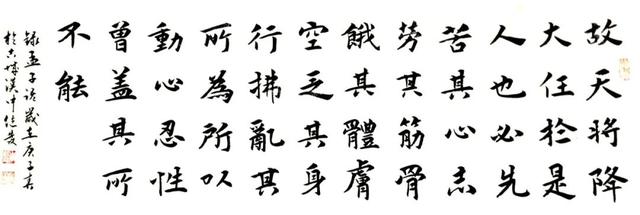 故天將降
大任於是
人也必先
苦其心志
勞其筋骨
餓其體膚
空乏其身
行拂亂其
所為所以
動心忍性
曾益其所
不能
錄孟子語歲在庚子春
於漢中